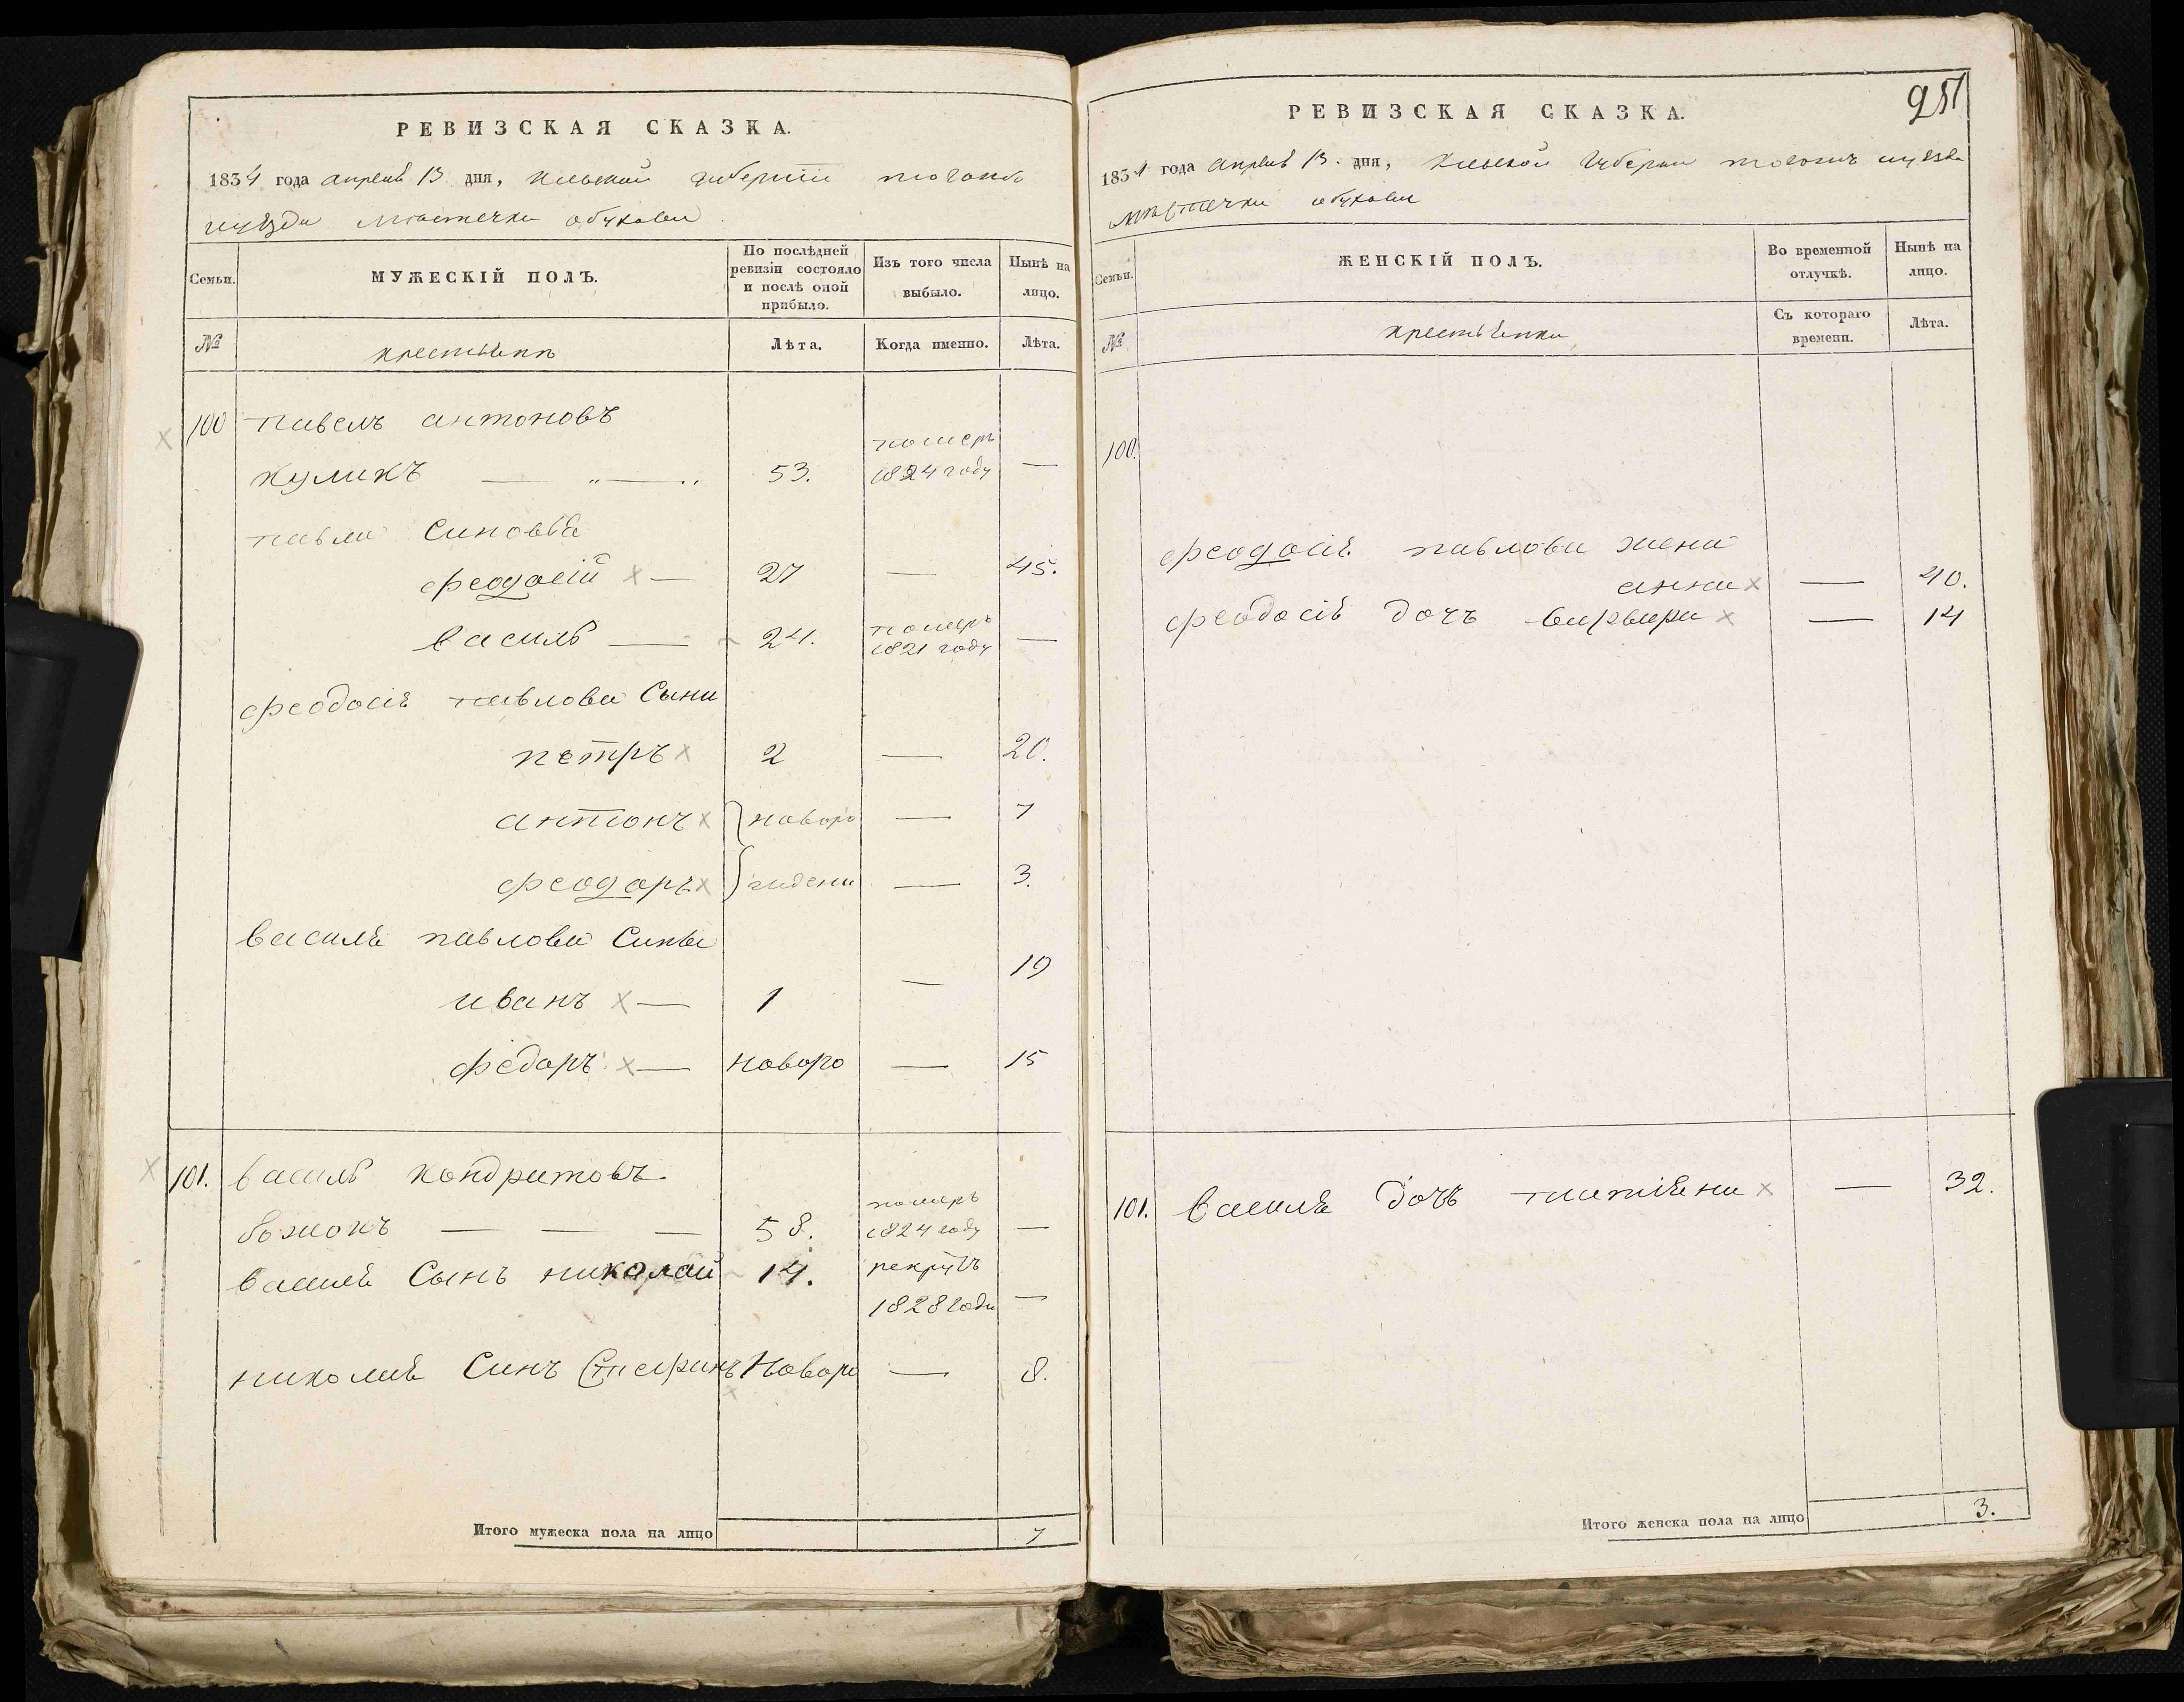 РЕВИЗСКАЯ СКАЗКА.
1834 года апреля 13 дня, киевской губернии тогожъ
уезда мѣстечка обухова
Семьи. МУЖЕСКІЙ ПОЛЪ. По послѣдней ревизіи состояло и послѣ оной прибыло. Изъ того числа выбыло. Нынѣ на лицо.
№ крестьянъ Лѣта. Когда именно. Лѣта.
100 павелъ антоновъ
куликъ — „ — „ 53. померъ 1824 году —
павла синовья
феодосій × — 27 — 45.
василь — 24. померъ 1821 году —
феодосія павлова сына
петръ × 2 — 20.
антонъ × новоро — 7
феодоръ × жденн — 3.
василя павлова сины
иванъ × — 1 — 19
федоръ × — новоро — 15
101. василь кондратовъ
божокъ — — — 58. померъ 1824 году —
василя сынъ николай 14. рекрутъ 1828 года —
николая синъ стефанъ × новоро — 8.
Итого мужеска пола на лицо 7
951
РЕВИЗСКАЯ СКАЗКА.
1834 года апреля 13. дня, киевской губернии тогожъ уезда
мѣстечка обухова
Семьи. ЖЕНСКІЙ ПОЛЪ. Во временной отлучкѣ. Нынѣ на лицо.
№ крестьянки Съ котораго времени. Лѣта.
100.
феодосія павлова жена
анна × — 40.
феодосія дочъ варвара × — 14
101. василя дочъ татіяна × — 32.
Итого женска пола на лицо 3.